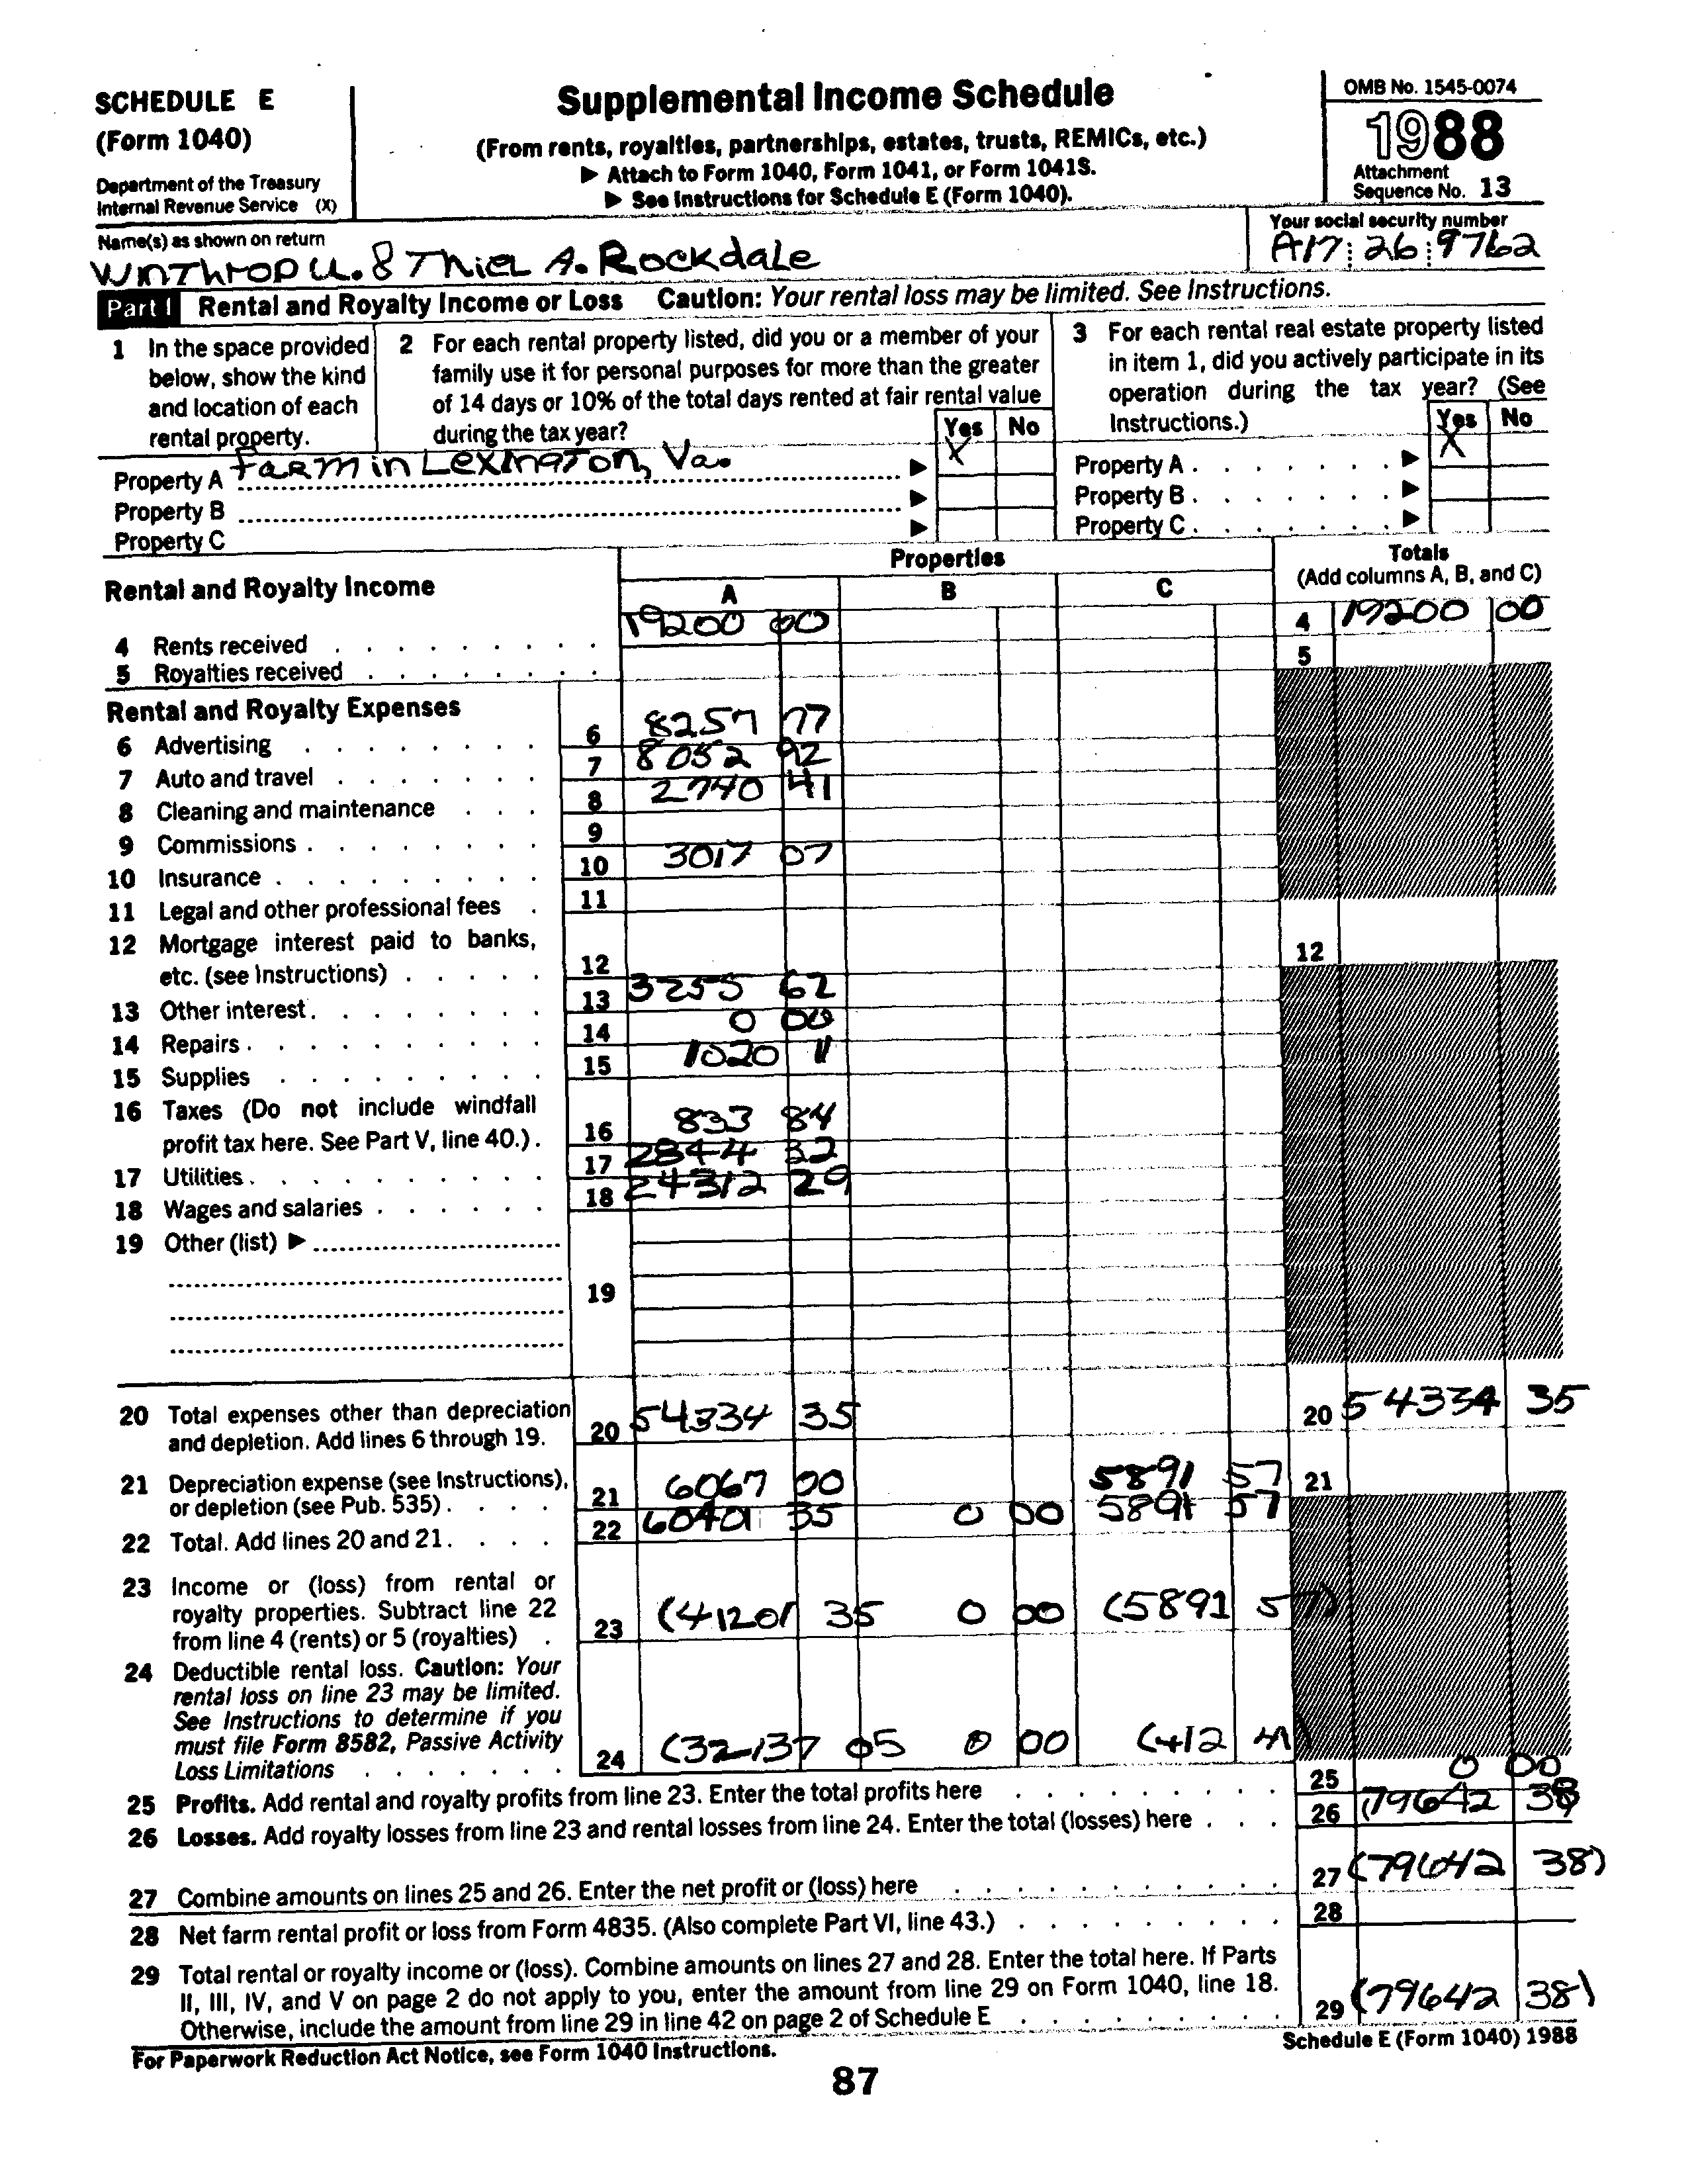 SCHEDULE E
(Form 1040)
Department of the Treasury
Internal Revenue Service (X)
Supplemental Income Schedule
(From rents, royalties, partnerships, estates, trusts, REMICs, etc.)
▶ Attach to Form 1040, Form 1041, or Form 1041S.
▶ See Instructions for Schedule E (Form 1040).
OMB No. 1545-0074
1988
Attachment
Sequence No. 13
Name(s) as shown on return
Winthrop U. & Thiel A. Rockdale
Your social security number
A17 26 9762
Part I Rental and Royalty Income or Loss Caution: Your rental loss may be limited. See Instructions.
1 In the space provided
below, show the kind
and location of each
rental property.
2 For each rental property listed, did you or a member of your
family use it for personal purposes for more than the greater
of 14 days or 10% of the total days rented at fair rental value
during the tax year?
Yes No
3 For each rental real estate property listed
in item 1, did you actively participate in its
operation during the tax year? (See
Instructions.)
Yes No
Property A Farm in Lexington, Va. ▶ X
Property B ▶
Property C ▶
Property A ▶ X
Property B ▶
Property C ▶
Rental and Royalty Income
Properties
A B C
Totals
(Add columns A, B, and C)
4 Rents received 19200 00 4 19200 00
5 Royalties received 5
Rental and Royalty Expenses
6 Advertising 6 8257 77
7 Auto and travel 7 8052 92
8 Cleaning and maintenance 8 2740 41
9 Commissions 9
10 Insurance 10 3017 07
11 Legal and other professional fees 11
12 Mortgage interest paid to banks,
etc. (see Instructions) 12 12
13 Other interest 13 3255 62
14 Repairs 14 0 00
15 Supplies 15 1020 11
16 Taxes (Do not include windfall
profit tax here. See Part V, line 40.) 16 833 84
17 Utilities 17 2844 32
18 Wages and salaries 18 24312 29
19 Other (list) ▶
19
20 Total expenses other than depreciation
and depletion. Add lines 6 through 19. 20 54334 35 20 54334 35
21 Depreciation expense (see Instructions),
or depletion (see Pub. 535) 21 6067 00 5891 57 21
22 Total. Add lines 20 and 21 22 60401 35 0 00 5891 57
23 Income or (loss) from rental or
royalty properties. Subtract line 22
from line 4 (rents) or 5 (royalties) 23 (41201 35 0 00 (5891 57)
24 Deductible rental loss. Caution: Your
rental loss on line 23 may be limited.
See Instructions to determine if you
must file Form 8582, Passive Activity
Loss Limitations 24 (32137 05 0 00 (412
25 Profits. Add rental and royalty profits from line 23. Enter the total profits here 25 0 00
26 Losses. Add royalty losses from line 23 and rental losses from line 24. Enter the total (losses) here 26 (79642 38
27 Combine amounts on lines 25 and 26. Enter the net profit or (loss) here 27 (79642 38)
28 Net farm rental profit or loss from Form 4835. (Also complete Part VI, line 43.) 28
29 Total rental or royalty income or (loss). Combine amounts on lines 27 and 28. Enter the total here. If Parts
II, III, IV, and V on page 2 do not apply to you, enter the amount from line 29 on Form 1040, line 18.
Otherwise, include the amount from line 29 in line 42 on page 2 of Schedule E 29 (79642 38)
For Paperwork Reduction Act Notice, see Form 1040 Instructions.
Schedule E (Form 1040) 1988
87